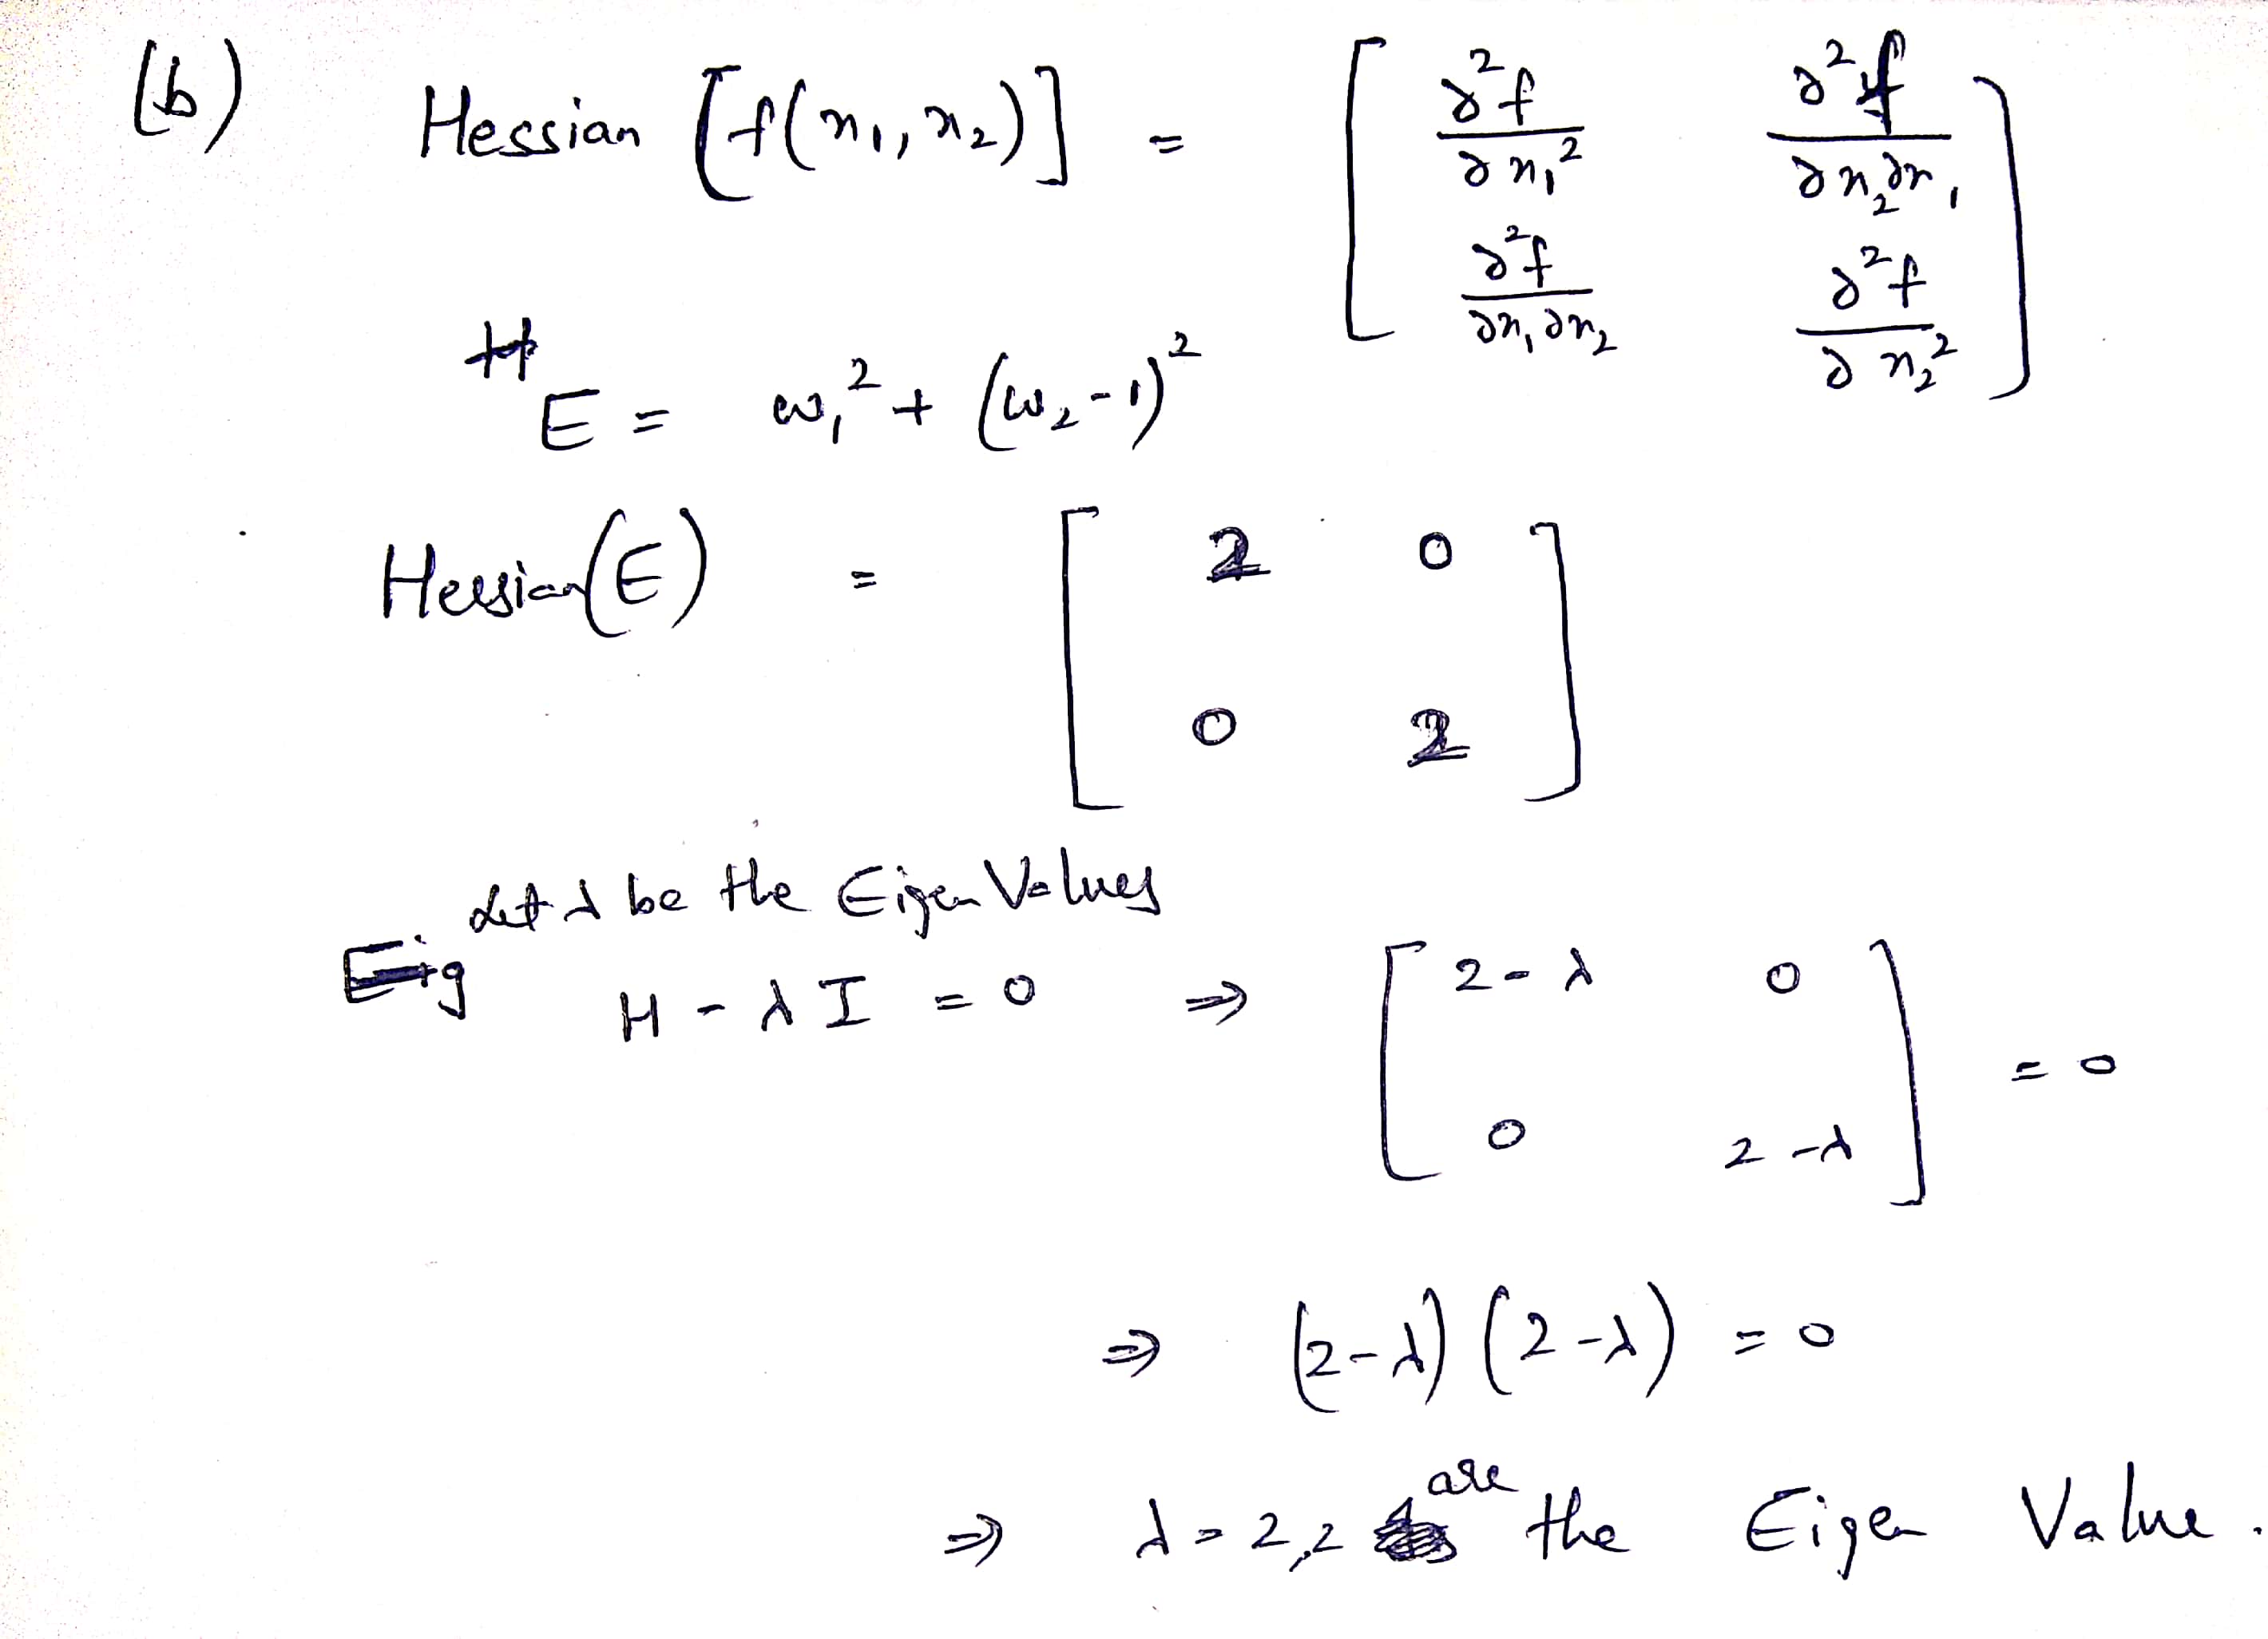 (b) Hessian [f(x₁,x₂)] = [ ∂²f/∂x₁² ∂²f/∂x₂∂x₁
∂²f/∂x₁∂x₂ ∂²f/∂x₂² ]
E = w₁² + (w₂-1)²
Hessian(E) = [ 2 0
0 2 ]
Let λ be the Eigen Values
H - λI = 0 ⇒ [ 2-λ 0
0 2-λ ] = 0
⇒ (2-λ) (2-λ) = 0
⇒ λ = 2,2 are the Eigen Value.